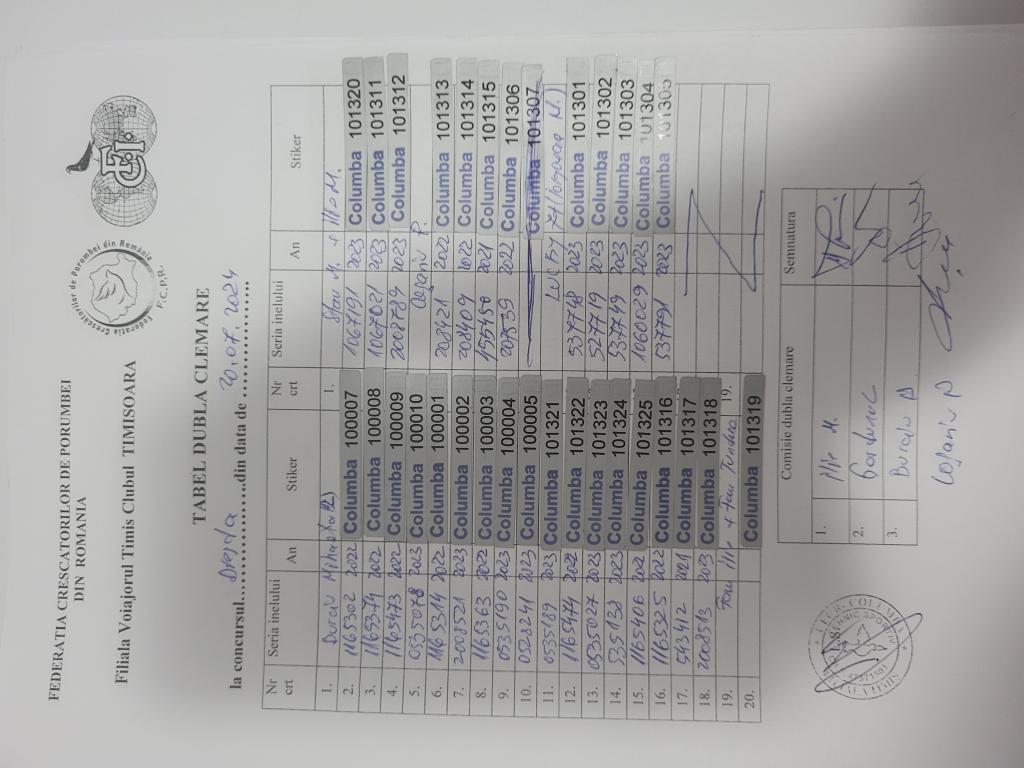 FEDERATIA CRESCATORILOR DE PORUMBEI
DIN ROMANIA
Filiala Voiajorul Timis Clubul TIMISOARA
Federatia Crescatorilor de Porumbei din România
F.C.P.R.
FCI
TABEL DUBLA CLEMARE
la concursul....Dresda....din data de 20.07.2024
Nr crt Seria inelului An Stiker Nr crt Seria inelului An Stiker
1. Burciu 1. Stan M. + Ilie M.
2. 1165302 2022 Columba 100007 1007191 2023 Columba 101320
3. 1165374 2022 Columba 100008 1007021 2023 Columba 101311
4. 1165473 2022 Columba 100009 2008789 2023 Columba 101312
5. 0535078 2023 Columba 100010 P.
6. 1165314 2022 Columba 100001 208421 2022 Columba 101313
7. 2008521 2023 Columba 100002 208409 2022 Columba 101314
8. 1165363 2022 Columba 100003 155450 2021 Columba 101315
9. 0535190 2023 Columba 100004 2022 Columba 101306
10. 0528241 2023 Columba 100005 Columba 101307
11. 0535189 2023 Columba 101321
12. 1165474 2022 Columba 101322 5379748 2023 Columba 101301
13. 0535027 2023 Columba 101323 527719 2023 Columba 101302
14. 535138 2023 Columba 101324 537749 2023 Columba 101303
15. 1165406 2022 Columba 101325 1060029 2023 Columba 101304
16. 1165325 2022 Columba 101316 537791 2023 Columba 101305
17. 543412 2021 Columba 101317
18. 2008513 2023 Columba 101318
19. Ilie + 19.
20. Columba 101319
Comisie dubla clemare Semnatura
1. Ilie M.
2.
3. Burciu D